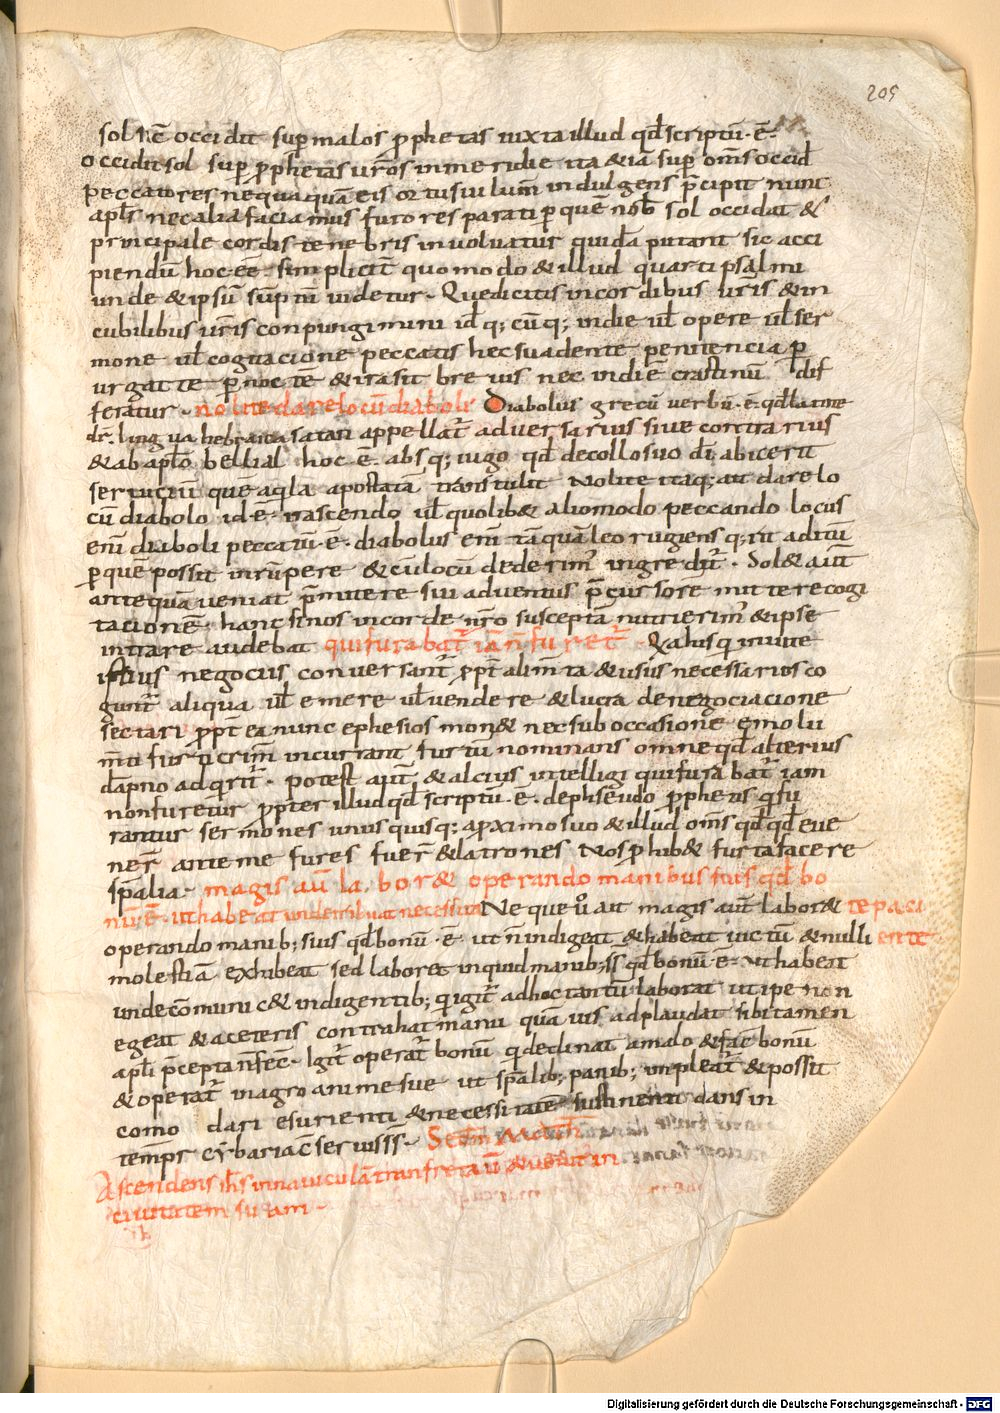 205
sol nē occidit sup malos pphetas iuxta illud qđ scriptū·ē·
occidit sol sup pphetas uŕos in meridie ita &iā sup om̄s occid̄
peccatores nequaquā eis ortus iu lum̄ indulgens p̄cipit nunc
apl̄s nec alia faciamus furores parati p quē nob̄ sol occidat &
principale cordis tenebris inuoluatur quidā putant sic acci
piendū hoc·eē· simplicit̄ quomodo & illud quarti psalmi
unde & ipsū sūptū uidetur· Que dicitis in cordibus uŕis & in
cubilibus uŕis conpungimini id q; cūq; in die ul̄ opere ul̄ ser
mone ul̄ cogitacione peccatis hec suadente penitencia p
urgatte p noctē & ira sit breuis nec in diē crastinū dif
feratur· nolite dare locū diaboli Diabolus grecū uerbū·ē·qđ latine
dŕ· lingua hebraica satan appellat̄ aduersarius siue contrarius
& ab aplo bellial hoc·ē· absq; iugo qđ de collo suo dī abicerit
seruiciū quē aqla apostata transtulit Nolite itaq; ait dare lo
cū diabolo id·ē· nascendo ul̄ quolib& alio modo peccando locus
enī diaboli peccatū·ē· diabolus enī tāquā leo rugiens q̄rit aditū
p que possit inrūpere & cū locū dederim̄ ingredit̄· Sol& aut̄
antequā ueniat p̄mittere sui aduentus p̄cursorē mittere cogi
tacionē· hanc si nos in corde nŕo susceptā nutrierim̄ & ipse
intrare audebat qui furabat̄ iā n̄ furet̄· Qalusq; in uite
istius negociis conuersant̄ ppt̄ alim̄ta & usus necessarios co
gunt̄ aliqua ul̄ emere ul̄ uendere & lucra de negociacione
sectari ppt̄ ea nunc ephesios mon& nec sub occasione emolu
m̄ti furti crim̄ incurrant furtū nominans omne qđ alterius
dāpno adqrit̄· potest aut̄ & alcius intelligi qui furabat̄ iam
non furetur ppter illud qđ scriptū·ē· de phseudo pphetis q̄ fu
rantur sermones unusquisq; a pximo suo & illud om̄s qđ qđ eue
nēr ante me fures fuer̄ & latrones Nos phib& furta facere
spalia· magis aū labor& operando manibus suis qđ bo
nū·ē· ut habeat unde tribuat necessita Neque u̇ ait magis aut̄ labor& tepaci
operando manib; suis qđ bonū·ē· ut n̄ indigeat & habeat uictū & nulli ente
molestiā exhibeat sed laboret inquid manib; ss qđ bonū·ē· ut habeat
unde cōmunic& indigentib; q̄ igit̄ ad hoc tantū laborat ut ipe non
egeat & a ceteris contrahat manu quā uis adplaudat sibi tamen
apl̄i p̄cepta n̄ fec· Igit̄ operat̄ bonū q̄ declinat a malo & fac̄ bonū
& operat̄ in agro anime sue ut spalib; panib; impleat̄ & possit
como dari esurienti & necessitatē sustinenti dans in
tempr̄ cybaria c̄seruis ss· Secdm Matth̄
Ascendens ih̄s in nauiculā transfretauit & uenit in
ciuitatem suam·